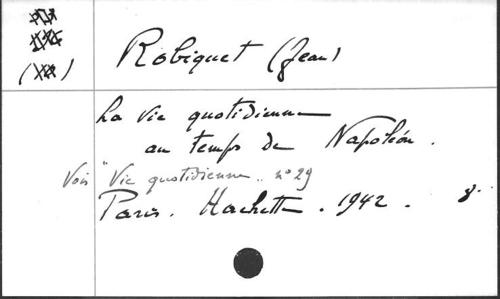 Robiquet (Jean)
La vie quotidienne
au temps de Napoléon.
Voir "Vie quotidienne" n° 29
Paris. Hachette. 1942.